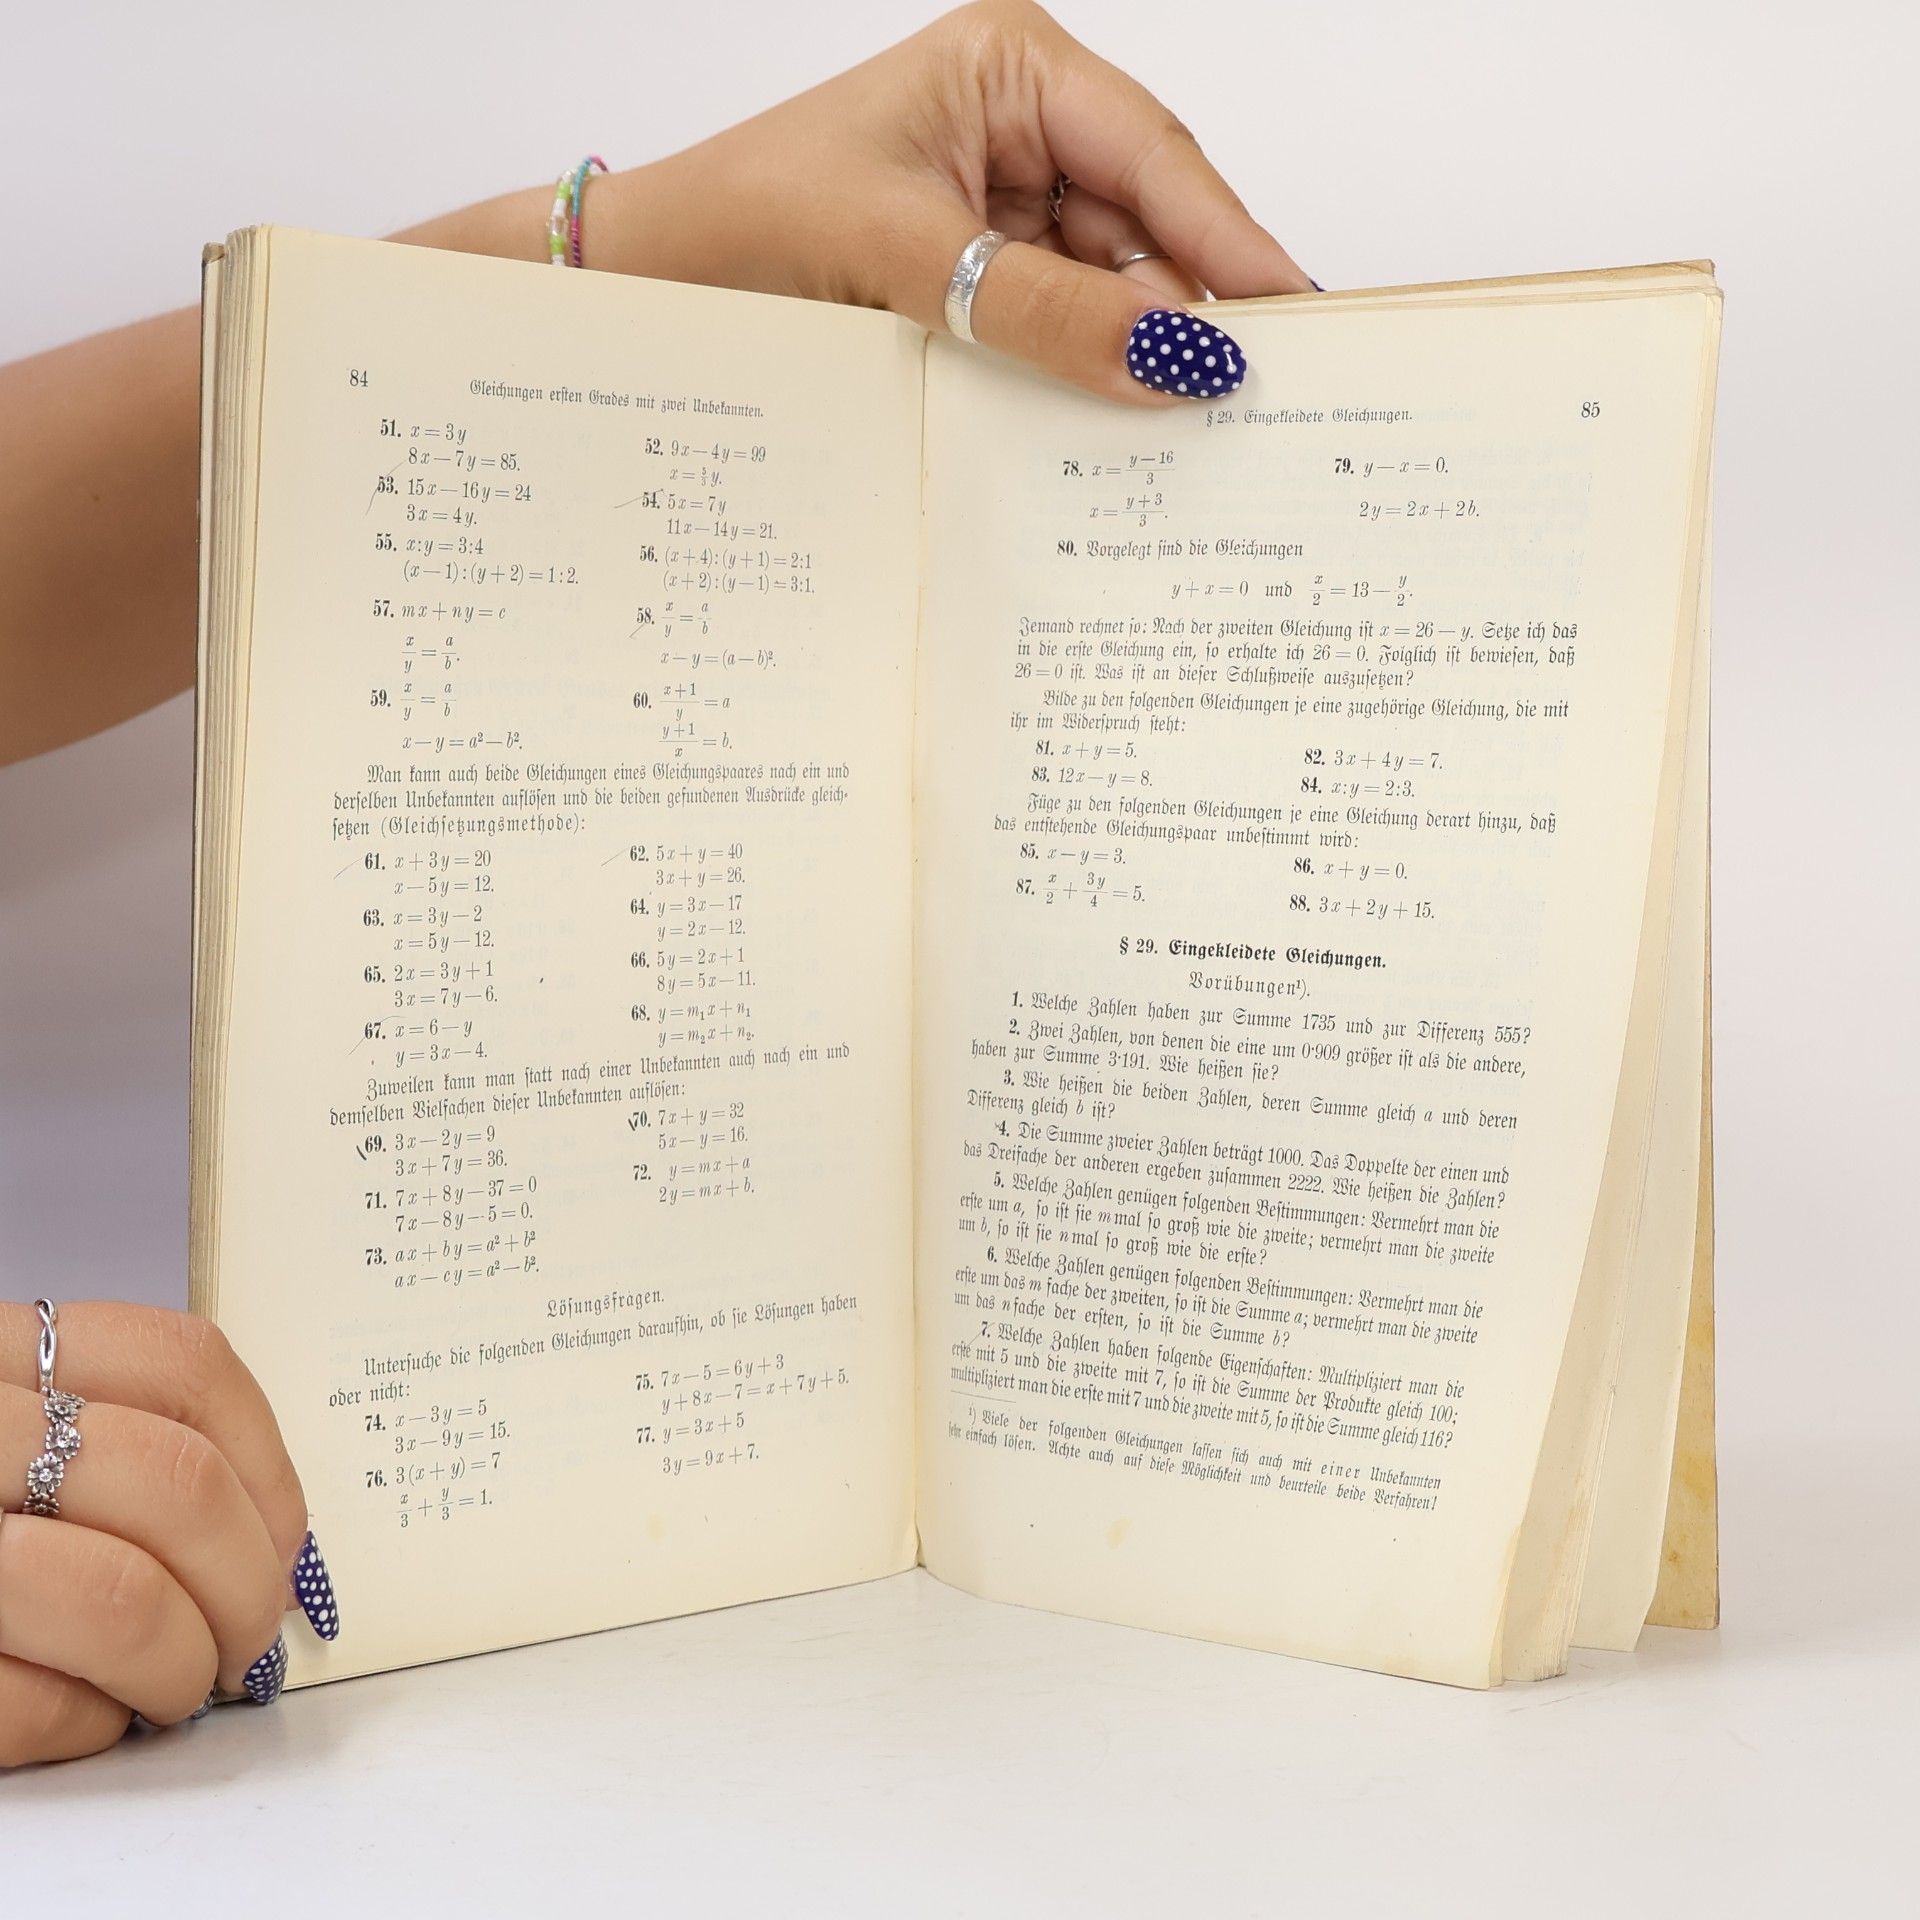 84
Gleichungen ersten Grades mit zwei Unbekannten.
51. x = 3y
8x — 7y = 85.
52. 9x — 4y = 99
x = 5/3 y.
53. 15x — 16y = 24
3x = 4y.
54. 5x = 7y
11x — 14y = 21.
55. x:y = 3:4
(x — 1):(y + 2) = 1:2.
56. (x + 4):(y + 1) = 2:1
(x + 2):(y — 1) = 3:1.
57. mx + ny = c
x/y = a/b.
58. x/y = a/b
x — y = (a — b)².
59. x/y = a/b
x — y = a² — b².
60. (x + 1)/y = a
(y + 1)/x = b.
Man kann auch beide Gleichungen eines Gleichungspaares nach ein und
derselben Unbekannten auflösen und die beiden gefundenen Ausdrücke gleich-
setzen (Gleichsetzungsmethode):
61. x + 3y = 20
x — 5y = 12.
62. 5x + y = 40
3x + y = 26.
63. x = 3y — 2
x = 5y — 12.
64. y = 3x — 17
y = 2x — 12.
65. 2x = 3y + 1
3x = 7y — 6.
66. 5y = 2x + 1
8y = 5x — 11.
67. x = 6 — y
y = 3x — 4.
68. y = m₁x + n₁
y = m₂x + n₂.
Zuweilen kann man statt nach einer Unbekannten auch nach ein und
demselben Vielfachen dieser Unbekannten auflösen:
69. 3x — 2y = 9
3x + 7y = 36.
70. 7x + y = 32
5x — y = 16.
71. 7x + 8y — 37 = 0
7x — 8y — 5 = 0.
72. y = mx + a
2y = mx + b.
73. ax + by = a² + b²
ax — cy = a² — b².
Lösungsfragen.
Untersuche die folgenden Gleichungen daraufhin, ob sie Lösungen haben
oder nicht:
74. x — 3y = 5
3x — 9y = 15.
75. 7x — 5 = 6y + 3
y + 8x — 7 = x + 7y + 5.
76. 3(x + y) = 7
x/3 + y/3 = 1.
77. y = 3x + 5
3y = 9x + 7.
§ 29. Eingekleidete Gleichungen.
85
78. x = (y — 16)/3
x = (y + 3)/3.
79. y — x = 0.
2y = 2x + 2b.
80. Vorgelegt sind die Gleichungen
y + x = 0 und x/2 = 13 — y/2.
Jemand rechnet so: Nach der zweiten Gleichung ist x = 26 — y. Setze ich das
in die erste Gleichung ein, so erhalte ich 26 = 0. Folglich ist bewiesen, daß
26 = 0 ist. Was ist an dieser Schlußweise auszusetzen?
Bilde zu den folgenden Gleichungen je eine zugehörige Gleichung, die mit
ihr im Widerspruch steht:
81. x + y = 5.
82. 3x + 4y = 7.
83. 12x — y = 8.
84. x:y = 2:3.
Füge zu den folgenden Gleichungen je eine Gleichung derart hinzu, daß
das entstehende Gleichungspaar unbestimmt wird:
85. x — y = 3.
86. x + y = 0.
87. x/2 + 3y/4 = 5.
88. 3x + 2y + 15.
§ 29. Eingekleidete Gleichungen.
Vorübungen¹).
1. Welche Zahlen haben zur Summe 1735 und zur Differenz 555?
2. Zwei Zahlen, von denen die eine um 0·909 größer ist als die andere,
haben zur Summe 3·191. Wie heißen sie?
3. Wie heißen die beiden Zahlen, deren Summe gleich a und deren
Differenz gleich b ist?
4. Die Summe zweier Zahlen beträgt 1000. Das Doppelte der einen und
das Dreifache der anderen ergeben zusammen 2222. Wie heißen die Zahlen?
5. Welche Zahlen genügen folgenden Bestimmungen: Vermehrt man die
erste um a, so ist sie m mal so groß wie die zweite; vermehrt man die zweite
um b, so ist sie n mal so groß wie die erste?
6. Welche Zahlen genügen folgenden Bestimmungen: Vermehrt man die
erste um das m fache der zweiten, so ist die Summe a; vermehrt man die zweite
um das n fache der ersten, so ist die Summe b?
7. Welche Zahlen haben folgende Eigenschaften: Multipliziert man die
erste mit 5 und die zweite mit 7, so ist die Summe der Produkte gleich 100;
multipliziert man die erste mit 7 und die zweite mit 5, so ist die Summe gleich 116?
¹) Viele der folgenden Gleichungen lassen sich auch mit einer Unbekannten
sehr einfach lösen. Achte auch auf diese Möglichkeit und beurteile beide Verfahren!